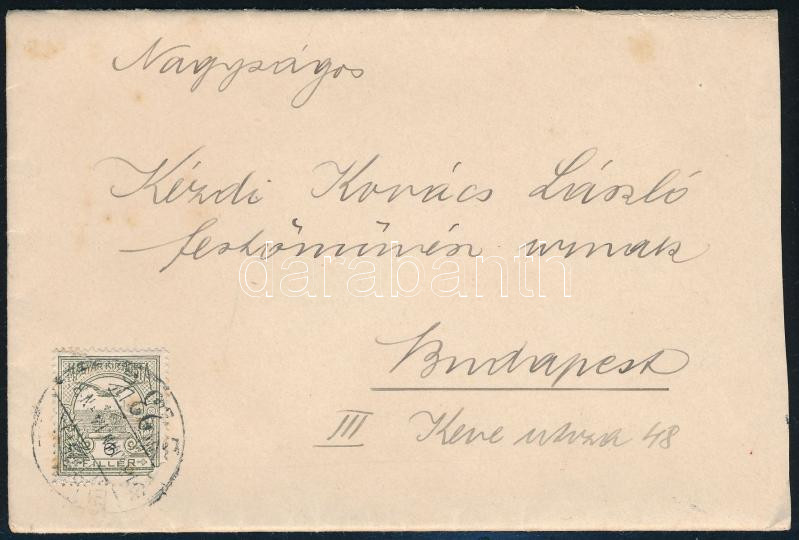 Nagyságos
Kézdi Kovács László
festőművész urnak
darabanth
Budapest
III Keve utcza 48
MAGYAR KIR. POSTA
6
FILLÉR